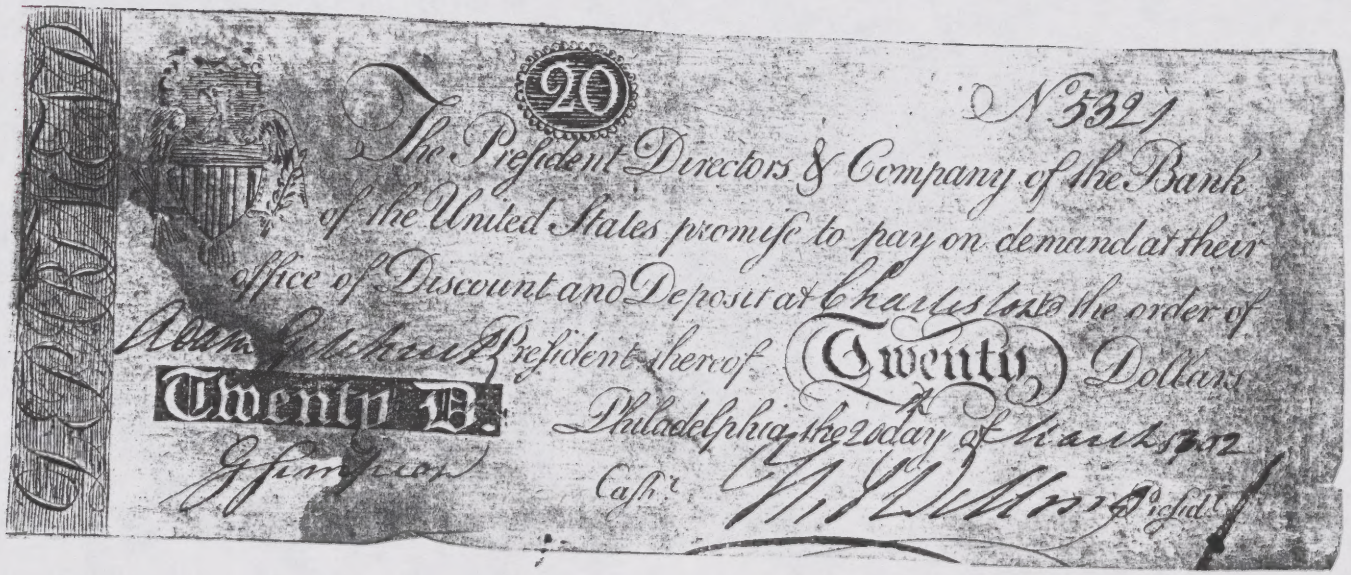 20
Nº 5321
The Preſident Directors & Company of the Bank
of the United States promiſe to pay on demand at their
office of Discount and Deposit at Charleston to the order of
Adam Gilchrist Preſident thereof Twenty Dollars
Twenty D.
Philadelphia, the 20 day of March
G Simpson Caſhr Preſidt